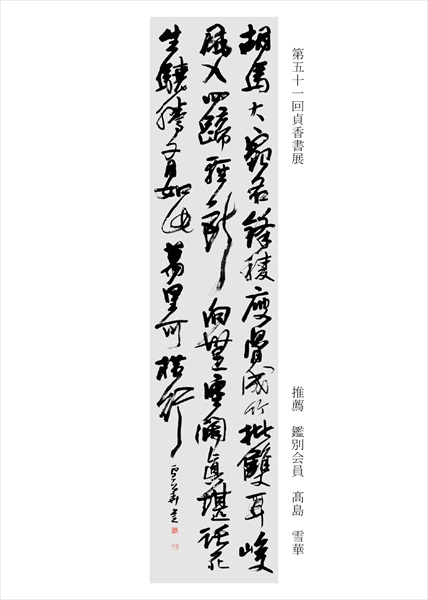 第五十一回貞香書展
推薦　鑑別会員　髙島　雪華
胡馬大宛名鋒稜瘦骨成竹批雙耳峻
風入四蹄輕所向無空闊真堪託死
生驍騰有如此萬里可横行